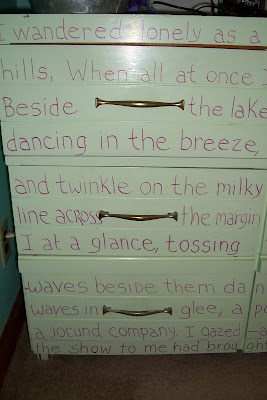 I wandered lonely as a
hills, When all at once I
Beside the lake
dancing in the breeze,
and twinkle on the milky
line across the margin
I at a glance, tossing
waves beside them da n
waves in glee, a p
a jocund company. I gazed —a
the show to me had brou ght